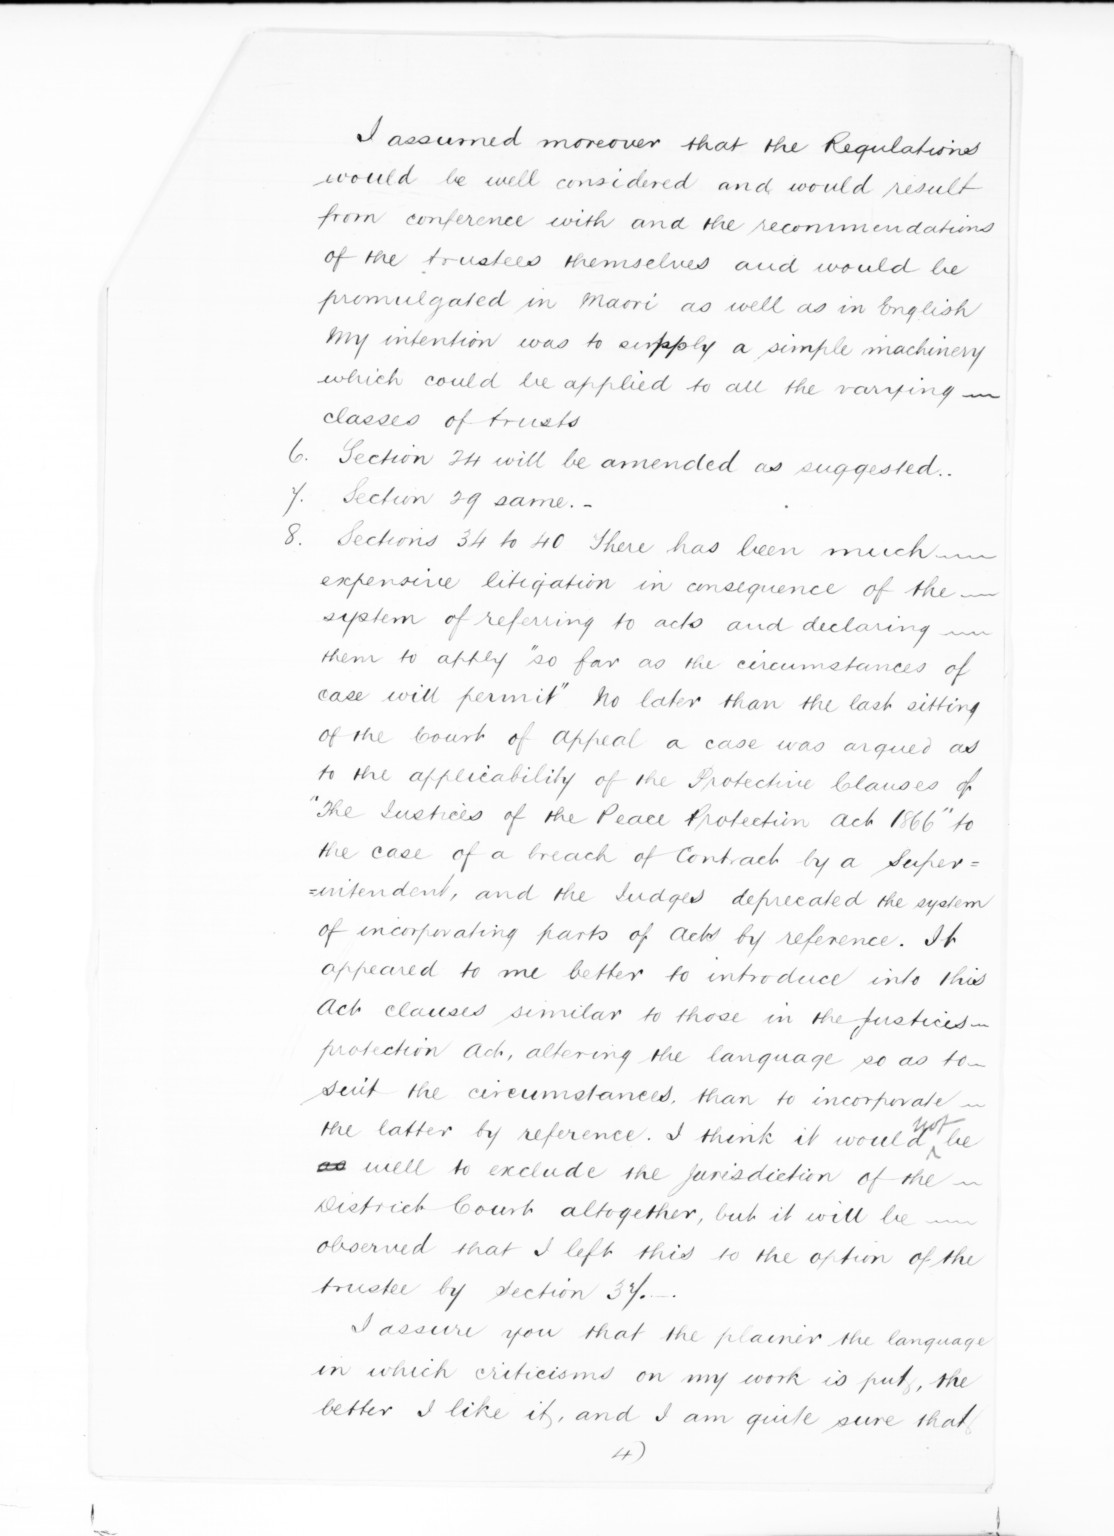 I assumed moreover that the Regulations
would be well considered and would result
from conference with and the recommendations
of the trustees themselves and would be
promulgated in Maori as well as in English
My intention was to supply a simple machinery
which could be applied to all the varying
classes of trusts
6. Section 24 will be amended as suggested..
7. Section 29 same. -
8. Sections 34 to 40 There has been much
expensive litigation in consequence of the
system of referring to acts and declaring
them to apply "so far as the circumstances of
case will permit" No later than the last sitting
of the Court of Appeal a case was argued as
to the applicability of the Protective Clauses of
"The Justices of the Peace Protection Act 1866" to
the case of a breach of Contract by a Super=
=intendent, and the Judges deprecated the system
of incorporating parts of Acts by reference. It
appeared to me better to introduce into this
Act clauses similar to those in the Justices
protection Act, altering the language so as to
suit the circumstances, than to incorporate
the latter by reference. I think it would not be
as well to exclude the jurisdiction of the
District Court altogether, but it will be
observed that I left this to the option of the
trustee by section 37.-.
I assure you that the plainer the language
in which criticisms on my work is put, the
better I like it, and I am quite sure that
4)